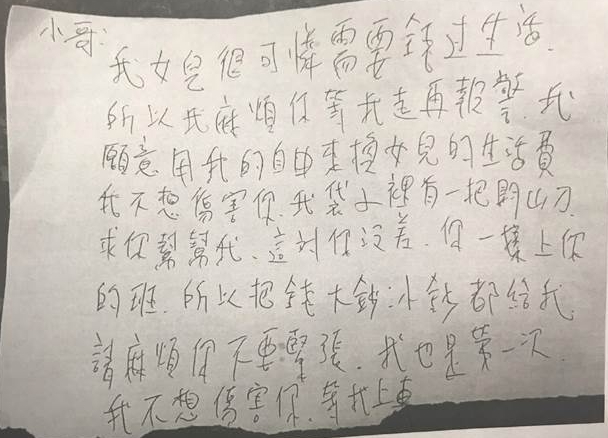 小哥:
我女兒很可憐需要錢过生活.
所以我麻煩你等我走再報警.我
願意用我的自由来換女兒的生活費
我不想傷害你.我袋子裡有一把開山刀.
求你幫幫我.這对你沒差.你一樣上你
的班.所以把錢大鈔小鈔都給我.
請麻煩你不要緊張.我也是第一次.
我不想傷害你.等我上車